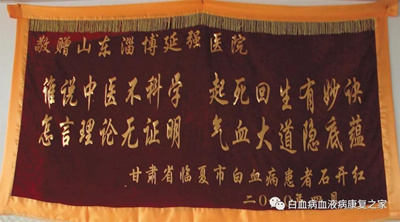 敬赠山东淄博延强医院
谁说中医不科学 起死回生有妙诀
怎言理论无证明 气血大道隐底蕴
甘肃省临夏市白血病患者石开红
二〇
白血病血液病康复之家